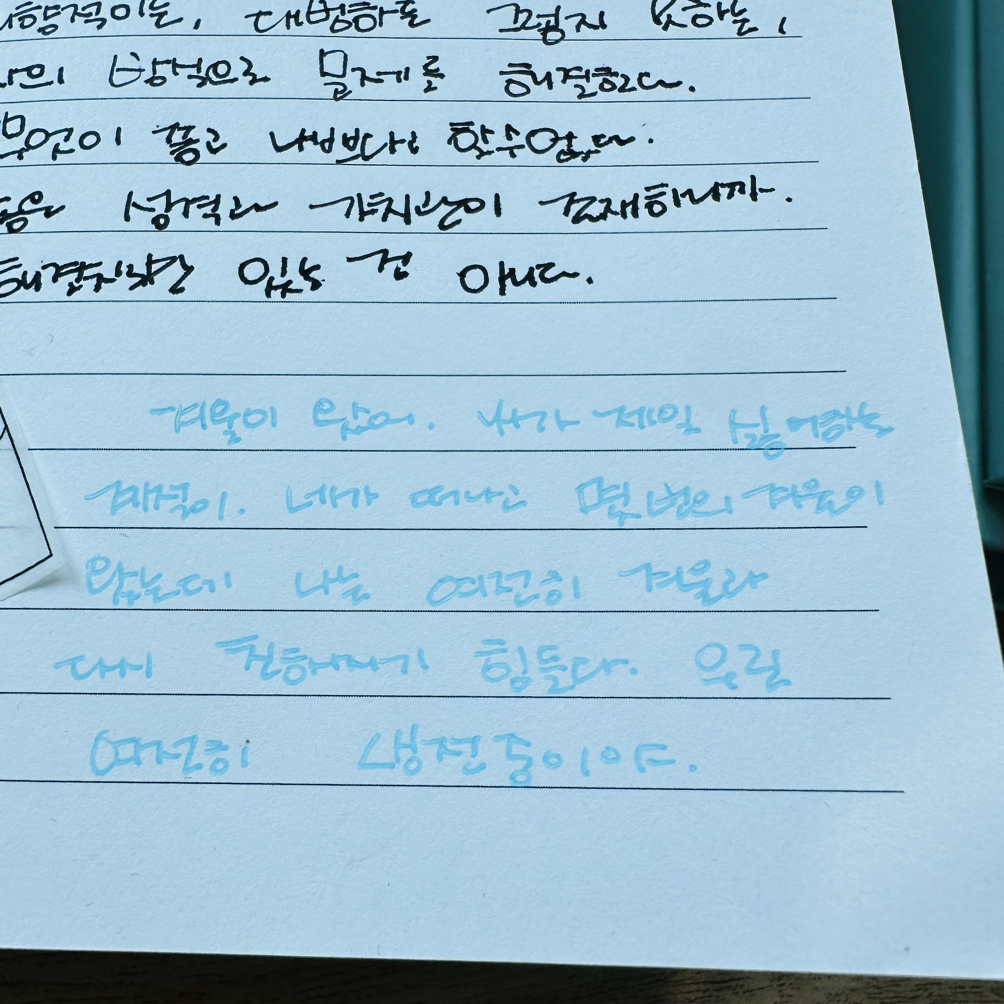 내향적이든, 대범하든 그렇지 못하든,
나의 방식으로 문제를 해결한다.
무엇이 좋고 나쁘다 할 수 없다.
성격과 가치관이 존재하니까.
있는 건 아니다.
겨울이 왔어. 내가 제일 싫어하는
계절이. 네가 떠나고 몇 번의 겨울이
왔는데 나는 여전히 겨울과
다시 친해지기 힘들다. 우린
여전히 냉전 중이야.